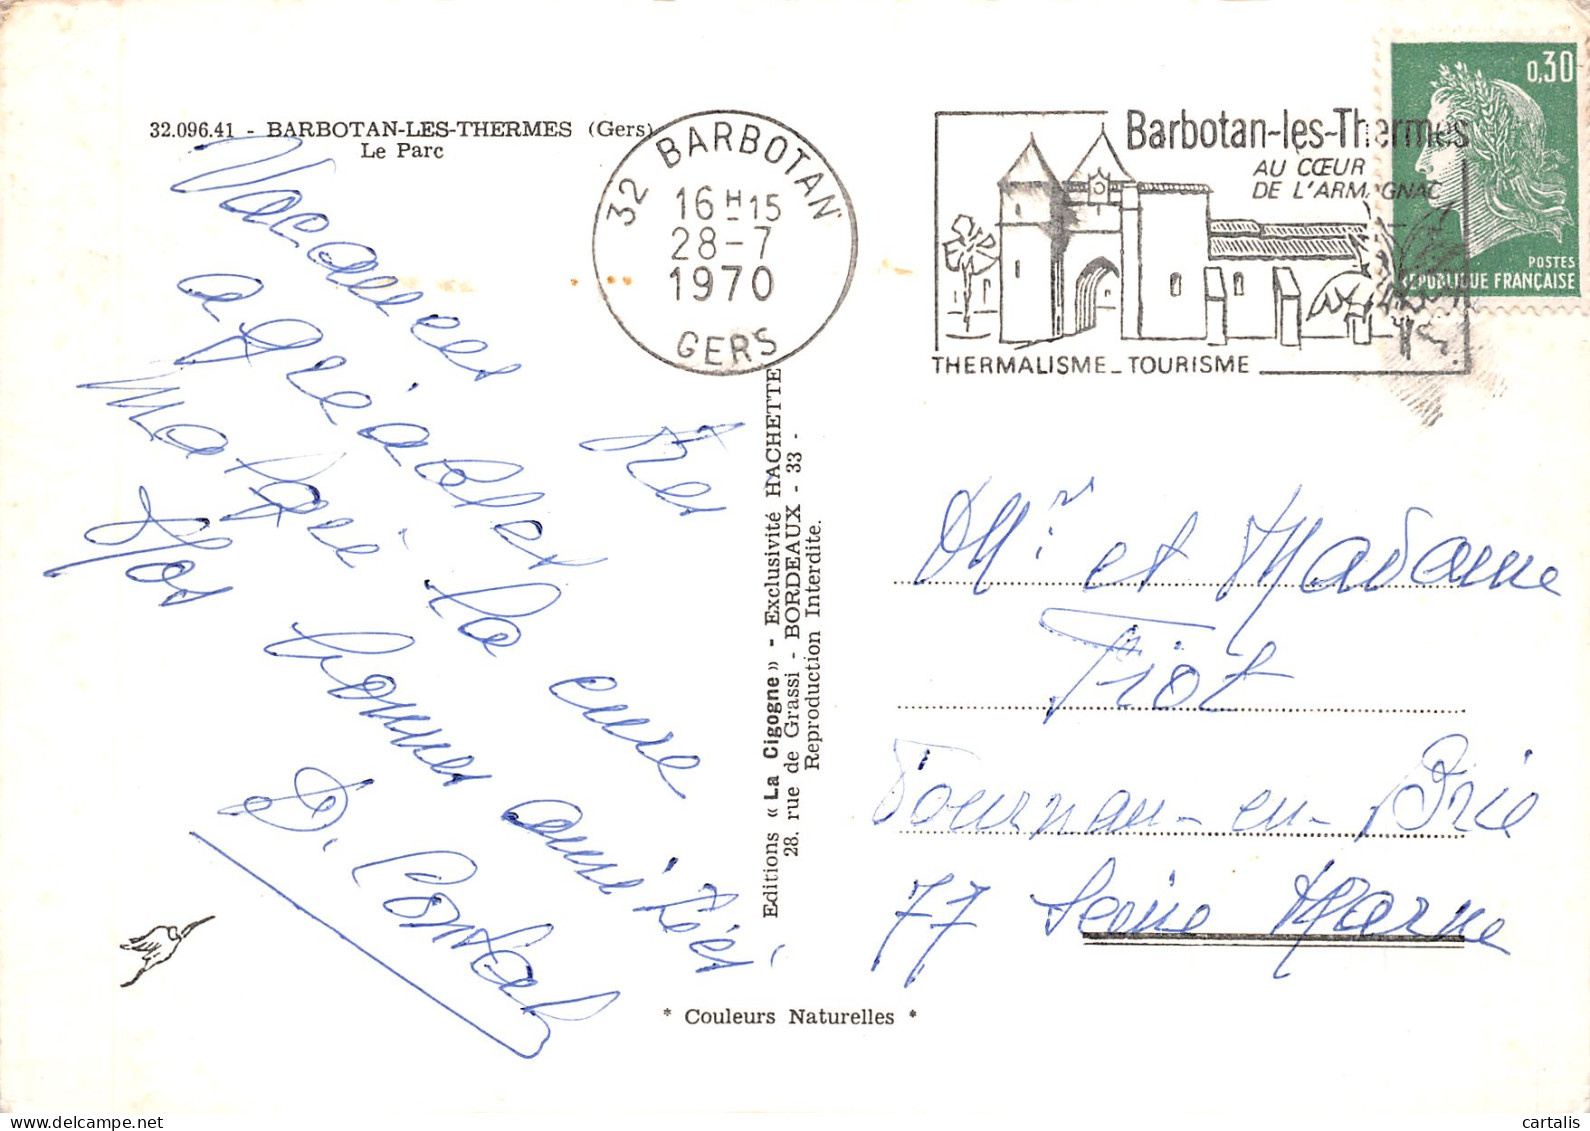 32.096.41 - BARBOTAN-LES-THERMES (Gers)
Le Parc
Vacances très
agréables
Malgré la cure
Nos bonnes amitiés
D.
32 BARBOTAN
16 H 15
28-7
1970
GERS
Barbotan-les-Thermes
AU CŒUR
DE L'ARMAGNAC
THERMALISME_TOURISME
0,30
POSTES
REPUBLIQUE FRANÇAISE
Editions « La Cigogne » - Exclusivité HACHETTE
28, rue de Grassi - BORDEAUX - 33 -
Reproduction Interdite.
Mr et Madame
Fiot
Tournan-en-Brie
77 Seine Marne
* Couleurs Naturelles *
cartalis
www.delcampe.net